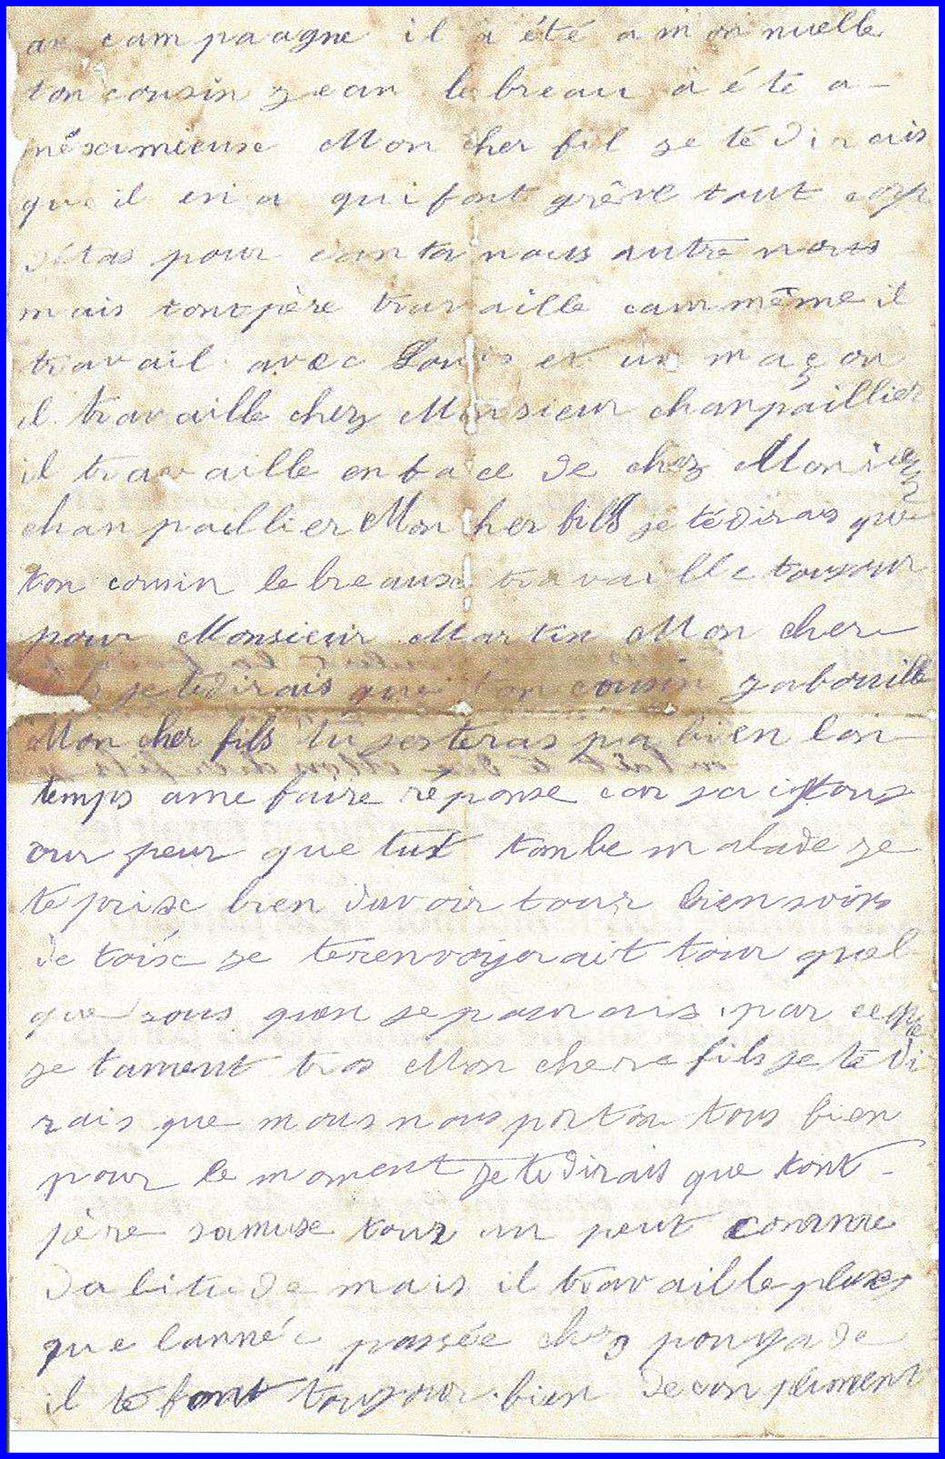 ae campaagne il a été a mon nuelle
ton cousin zean lebreau a été a -
Mon cher fil je tédirais
que il en a qui font grêve tout
pour nous autre nous
mais tontpère travaille caurmême il
travail avec Louis et un maçon
il travaille chez Monsieur chanpaillier
il travaille enface de chez Monsieur
chanpaillier Mon her fills je tédirais que
ton cousin lebreause travaille toujour
pour Monsieur Martin Mon cher
je tedirais que ton cousin zabouille
Mon cher fils tu pa bien lon
temps ame faire réponse car
our peur que tut tonbe malade ze
te prix bien davoir tour bien soin
de toix se terenvoyerait tour quel
que sous par ceque
se tament tros Mon chere fils je te di
rais que nous nous porton tous bien
pour le moment je tedirais que tont -
père samuse tour un peut comme
dabitude mais il travaille plus
que lannéc passée chez pouyade
il te font toujour bien de conpliment